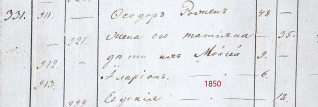 331. 911. — Ѳеодоръ Роменъ 48 —
— 921. Жена его Татіяна — 35.
912. — дѣти ихъ Моисей 9. —
913. — Иларіонъ — — 6.
1850
Евдокія — — 12.